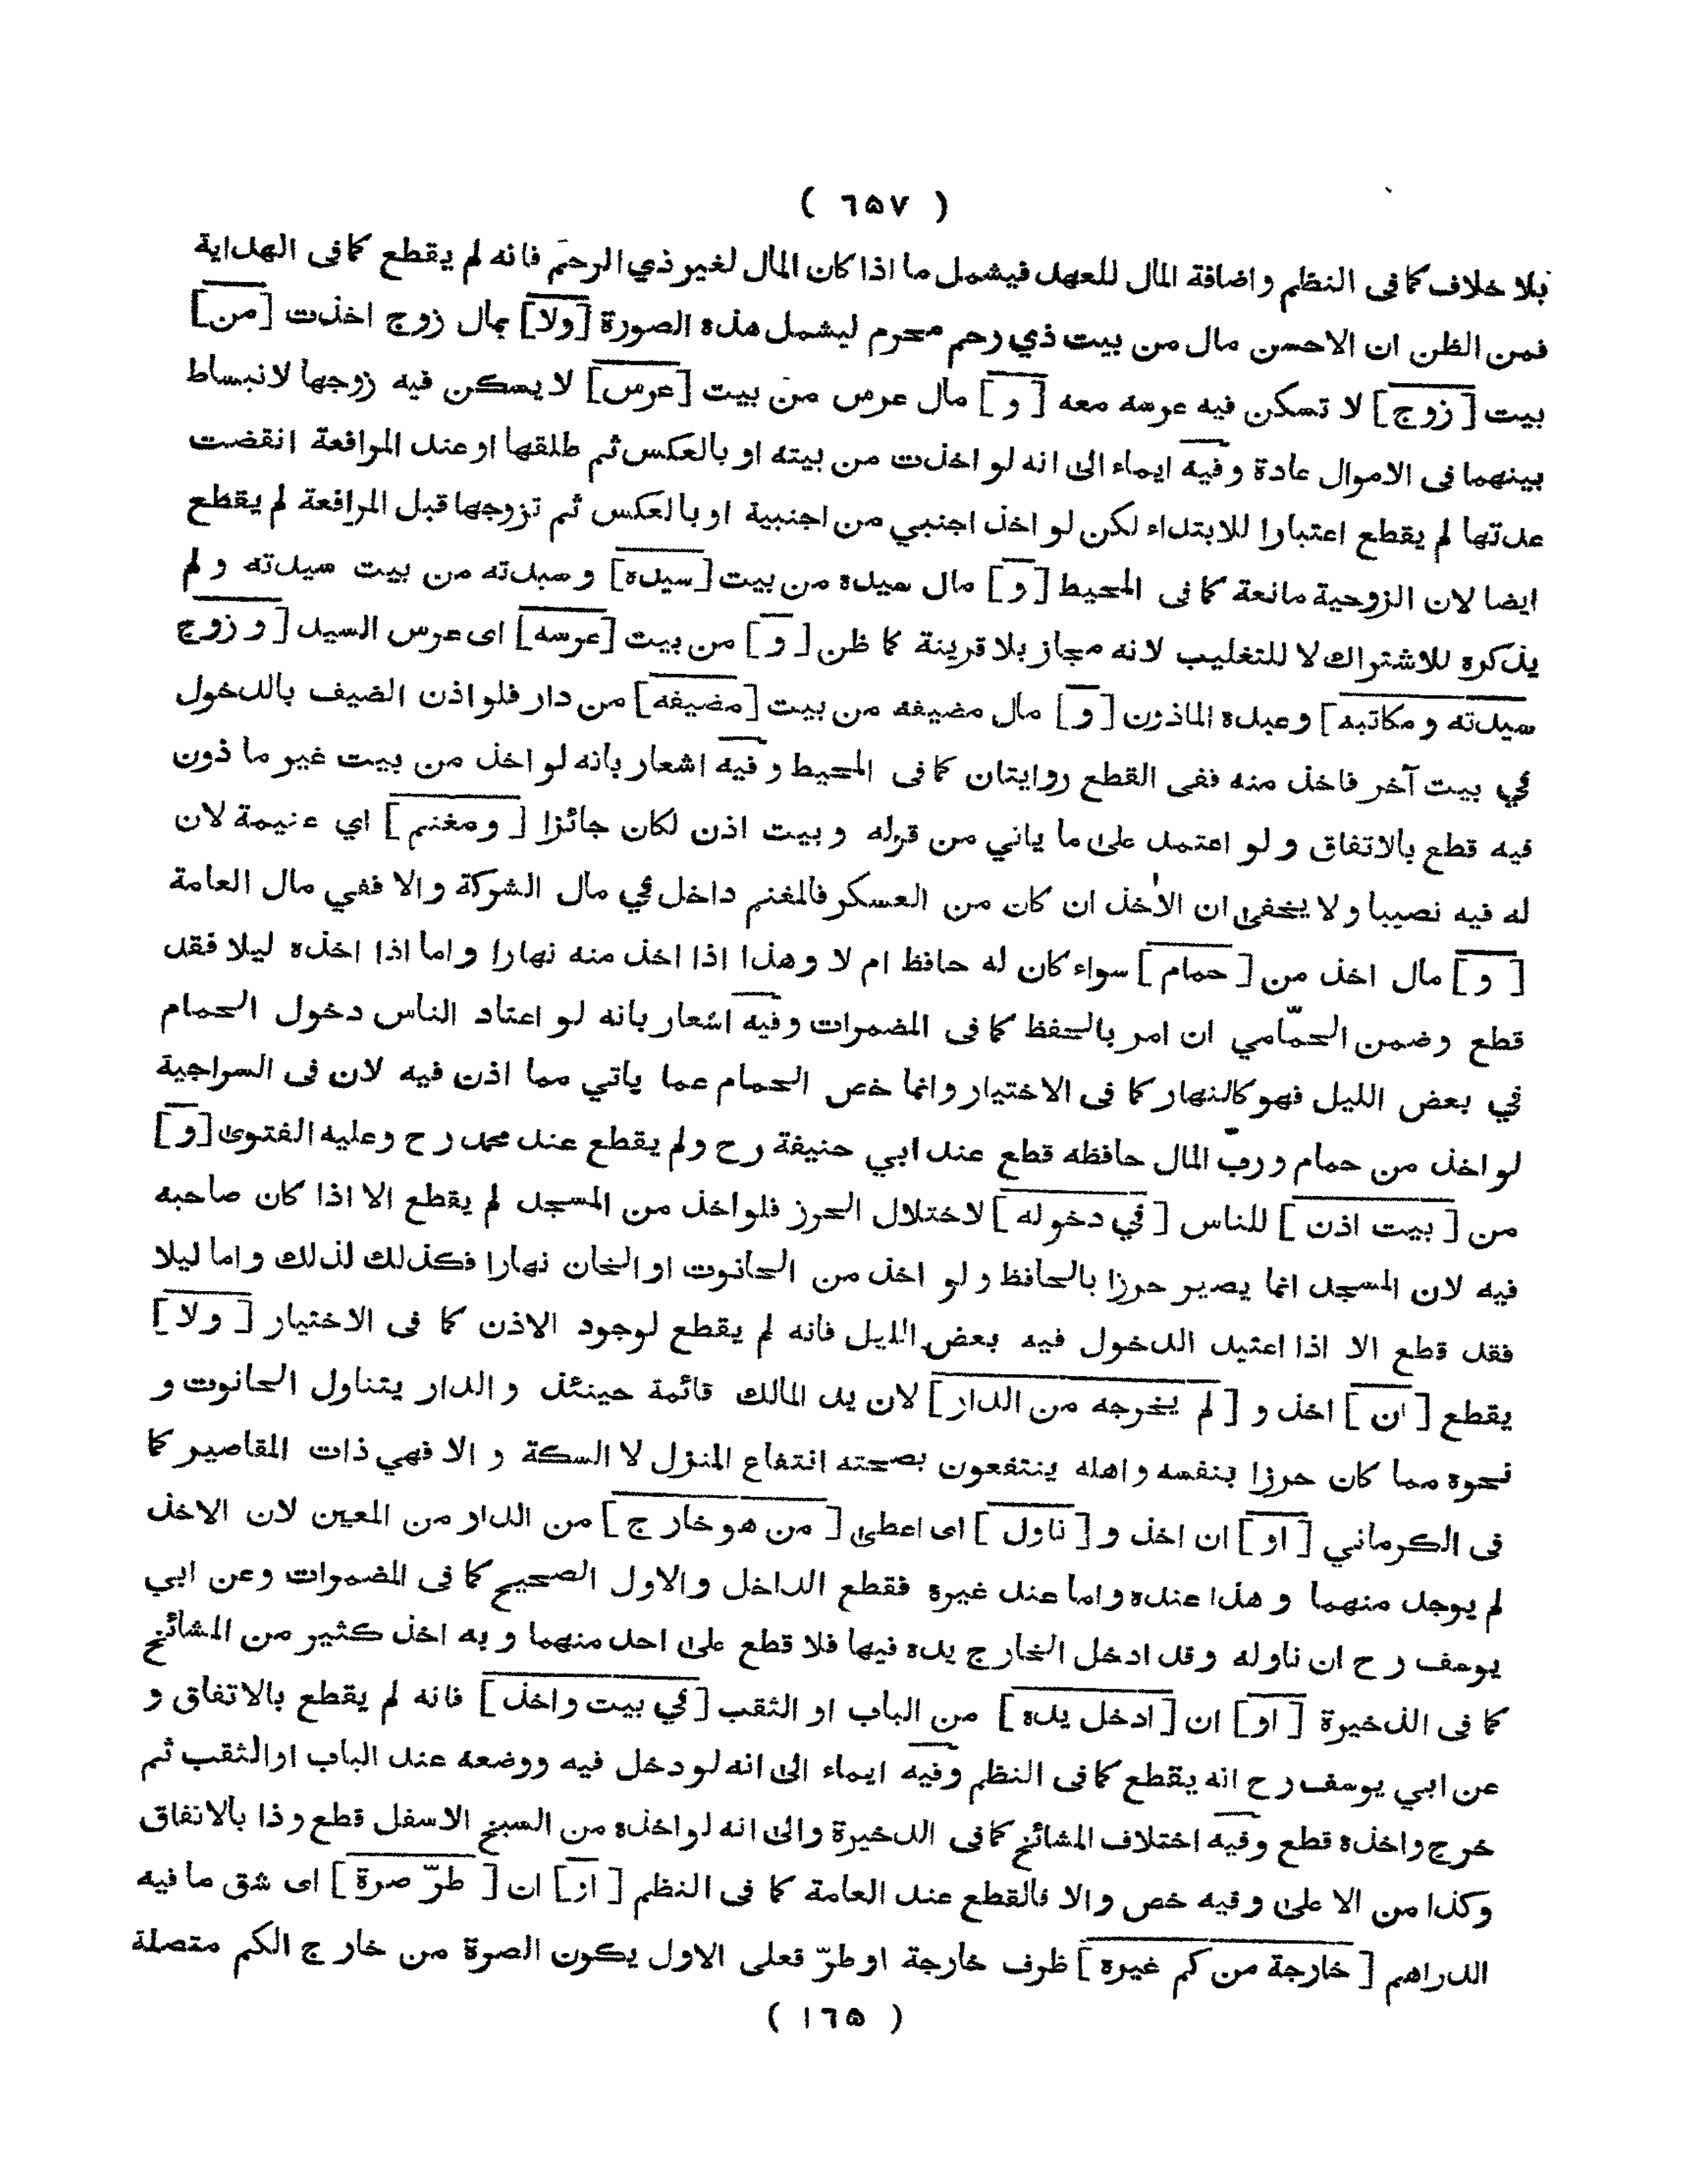 ( ٦٥٧ )
بلا خلاف كما فى النظم واضافة المال للعهد فيشمل ما اذا كان المال لغير ذي الرحم فانه لم يقطع كما فى الهداية
فمن الظن ان الاحسن مال من بيت ذي رحم محرم ليشمل هذه الصورة [ولا] بمال زوج اخذت [من]
بيت [زوج] لا تسكن فيه عرسه معه [و] مال عرس من بيت [عرس] لا يسكن فيه زوجها لانبساط
بينهما فى الاموال عادة وفيه ايماء الى انه لو اخذت من بيته او بالعكس ثم طلقها او عند المرافعة انقضت
عدتها لم يقطع اعتبارا للابتداء لكن لو اخذ اجنبي من اجنبية او بالعكس ثم تزوجها قبل المرافعة لم يقطع
ايضا لان الزوجية مانعة كما فى المحيط [و] مال سيده من بيت [سيده] وسيدته من بيت سيدته ولم
يذكره للاشتراك لا للتغليب لانه مجاز بلا قرينة كما ظن [و] من بيت [عرسه] اى عرس السيد [وزوج
سيدته ومكاتبه] وعبده الماذون [و] مال مضيفه من بيت [مضيفه] من دار فلو اذن الضيف بالدخول
في بيت آخر فاخذ منه ففى القطع روايتان كما فى المحيط وفيه اشعار بانه لو اخذ من بيت غير ما ذون
فيه قطع بالاتفاق ولو اعتمد على ما ياتي من قوله وبيت اذن لكان جائزا [ومغنم] اي غنيمة لان
له فيه نصيبا ولا يخفى ان الاخذ ان كان من العسكر فالمغنم داخل في مال الشركة والا ففي مال العامة
[و] مال اخذ من [حمام] سواء كان له حافظ ام لا وهذا اذا اخذ منه نهارا واما اذا اخذه ليلا فقد
قطع وضمن الحمّامي ان امر بالحفظ كما فى المضمرات وفيه اشعار بانه لو اعتاد الناس دخول الحمام
في بعض الليل فهو كالنهار كما فى الاختيار وانما خص الحمام عما ياتي مما اذن فيه لان فى السراجية
لو اخذ من حمام ورب المال حافظه قطع عند ابي حنيفة رح ولم يقطع عند محمد رح وعليه الفتوى [و]
من [بيت اذن] للناس [في دخوله] لاختلال الحرز فلو اخذ من المسجد لم يقطع الا اذا كان صاحبه
فيه لان المسجد انما يصير حرزا بالحافظ ولو اخذ من الحانوت او الخان نهارا فكذلك لذلك واما ليلا
فقد قطع الا اذا اعتيد الدخول فيه بعض الليل فانه لم يقطع لوجود الاذن كما فى الاختيار [ولا]
يقطع [ان] اخذ و [لم يخرجه من الدار] لان يد المالك قائمة حينئذ والدار يتناول الحانوت و
نحوه مما كان حرزا بنفسه واهله ينتفعون بصحنه انتفاع المنزل لا السكة والا فهي ذات المقاصير كما
فى الكرماني [او] ان اخذ و [ناول] اى اعطى [من هو خارج] من الدار من المعين لان الاخذ
لم يوجد منهما وهذا عنده واما عند غيره فقطع الداخل والاول الصحيح كما فى المضمرات وعن ابي
يوسف رح ان ناوله وقد ادخل الخارج يده فيها فلا قطع على احد منهما وبه اخذ كثير من المشائخ
كما فى الذخيرة [او] ان [ادخل يده] من الباب او الثقب [في بيت واخذ] فانه لم يقطع بالاتفاق و
عن ابي يوسف رح انه يقطع كما فى النظم وفيه ايماء الى انه لو دخل فيه ووضعه عند الباب او الثقب ثم
خرج واخذه قطع وفيه اختلاف المشائخ كما فى الذخيرة والى انه لو اخذه من السبخ الاسفل قطع وذا بالاتفاق
وكذا من الا على وفيه خص والا فالقطع عند العامة كما فى النظم [او] ان [طرّ صرة] اى شق ما فيه
الدراهم [خارجة من كم غيره] ظرف خارجة او طرّ فعلى الاول يكون الصرة من خارج الكم متصلة
( ١٦٥ )